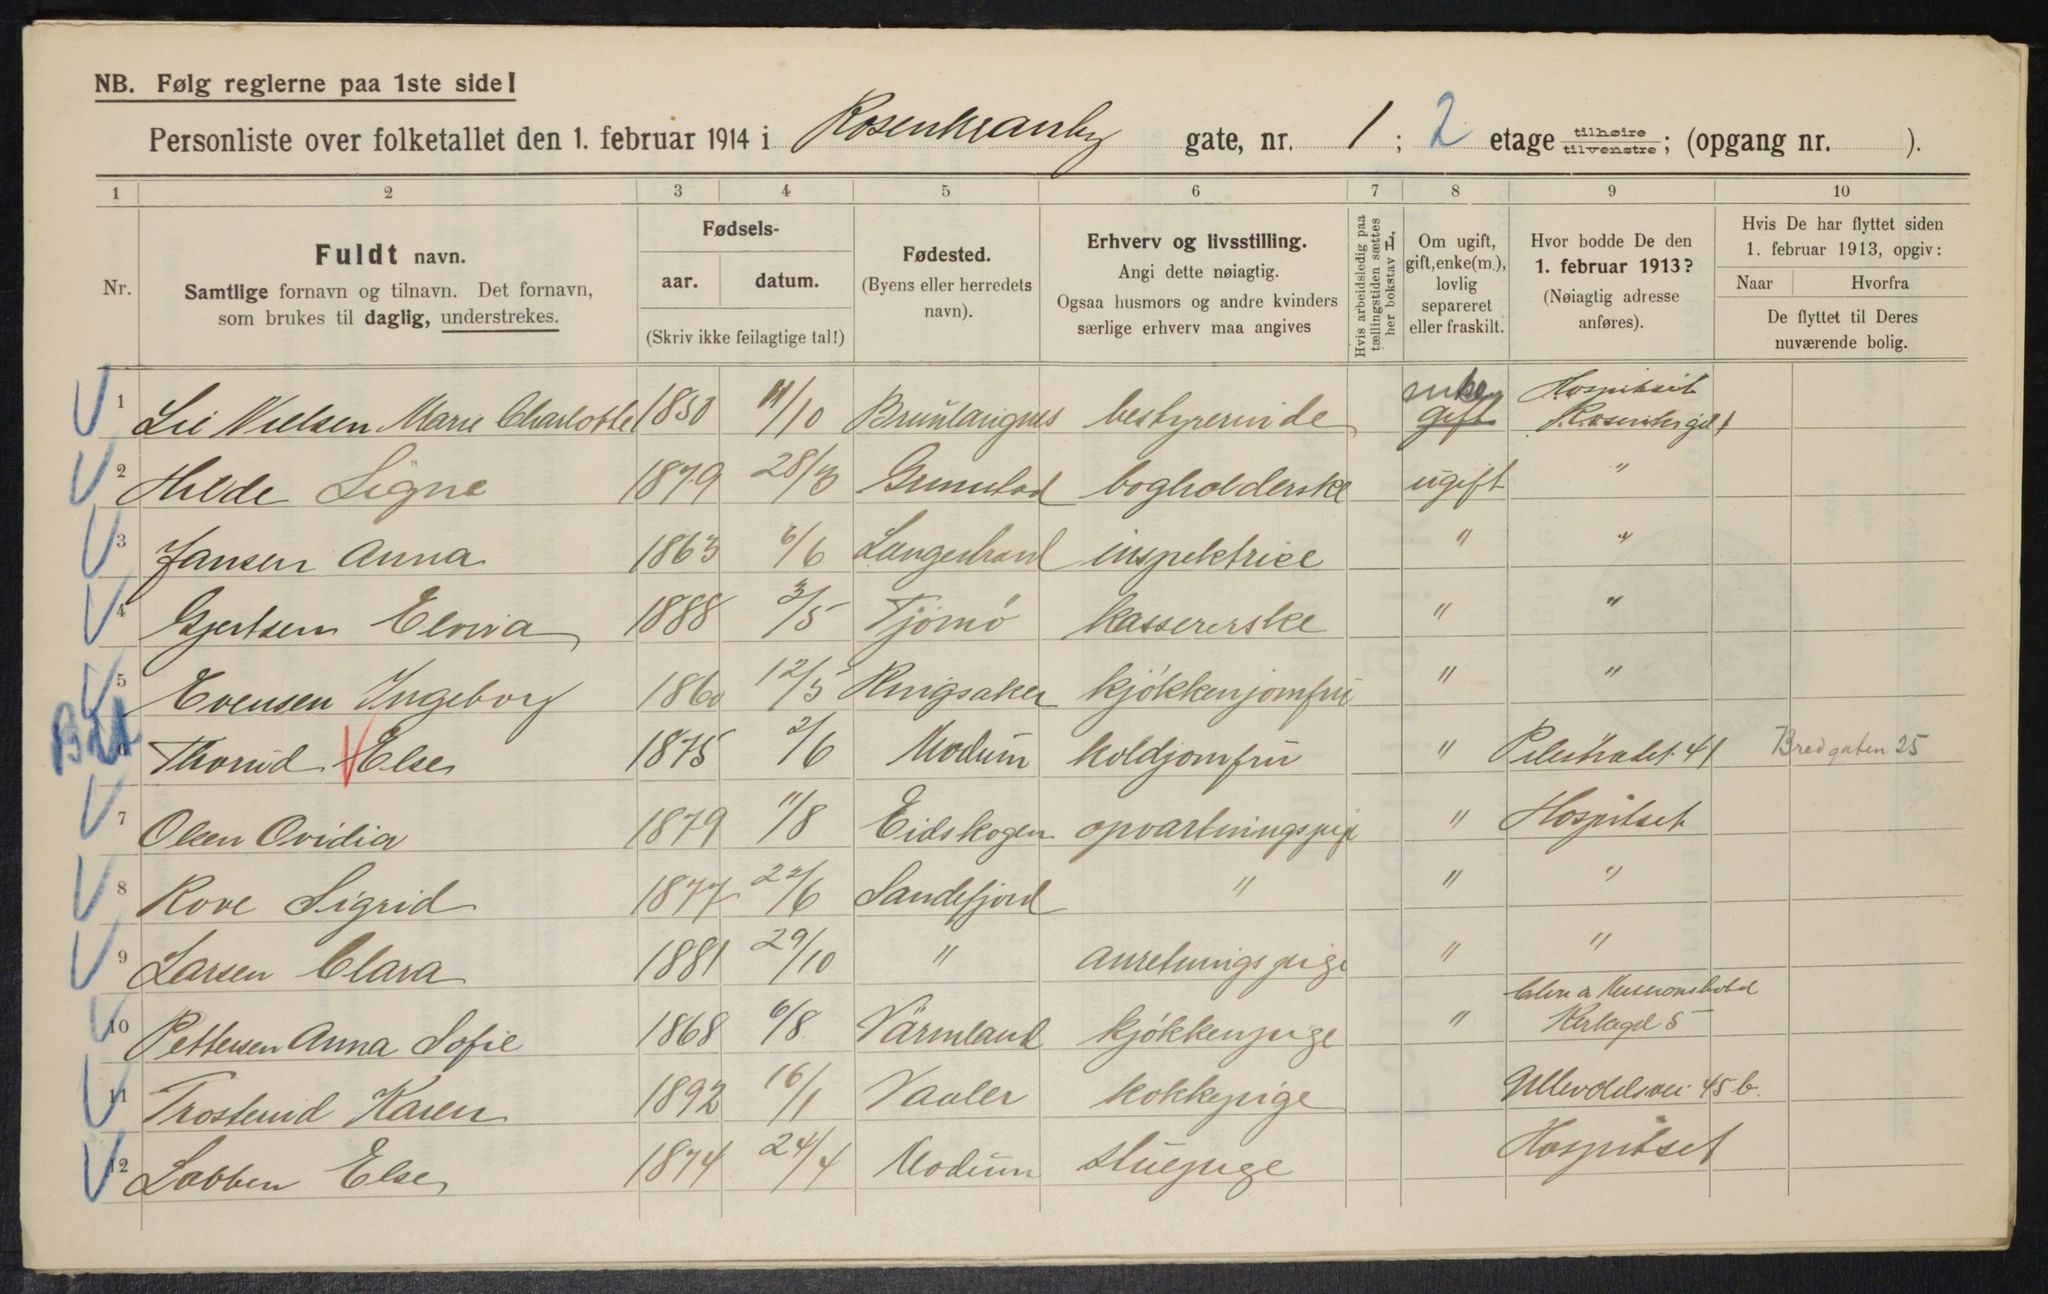 NB. Følg reglerne paa 1ste side!
Personliste over folketallet den 1. februar 1914 i Rosenkranby gate, nr. 1; 2 etage tilhøire tilvenstre; (opgang nr. ).
1 2 3 4 5 6 7 8 9 10
Nr.
Fuldt navn.
Samtlige fornavn og tilnavn. Det fornavn,
som brukes til daglig, understrekes.
Fødsels-
aar. datum.
(Skriv ikke feilagtige tal!)
Fødested.
(Byens eller herredets
navn).
Erhverv og livsstilling.
Angi dette nøiagtig.
Ogsaa husmors og andre kvinders
særlige erhverv maa angives
Hvis arbeidsledig paa
tællingstiden sættes
her bokstav L.
Om ugift,
gift, enke(m.),
lovlig
separeret
eller fraskilt.
Hvor bodde De den
1. februar 1913?
(Nøiagtig adresse
anføres).
Hvis De har flyttet siden
1. februar 1913, opgiv:
Naar Hvorfra
De flyttet til Deres
nuværende bolig.
1 Lie Nielsen Marie Charlotte 1850 11/10 Brunlangnes bestyrerinde enke gift Hospitset
2 Hilde Signe 1879 28/3 Grimstad bogholderske ugift "
3 Jansen Anna 1863 6/6 Langestrand inspektrice " "
4 Gjertsen Elvira 1888 3/5 Tjømø kassererske " "
5 Evensen Ingeborg 1860 12/5 Ringsaker kjøkkenjomfru " "
6 Thorud Else 1875 2/6 Modum koldjomfru " Pilestrædet 41 Bredgaten 25
7 Olsen Ovidia 1879 11/8 Eidskogen opvartningspige " Hospitset
8 Rove Sigrid 1877 22/6 Sandefjord " " "
9 Larsen Clara 1881 29/10 " anretningspige " "
10 Pettersen Anna Sofie 1868 6/8 Värmland kjøkkenpige " Missionshotel
Kirkegd 5
11 Trosterud Karen 1892 16/1 Vaaler kokkepige Ullevoldsvei 45 b.
12 Labben Else 1874 24/4 Modum stuepige Hospitset